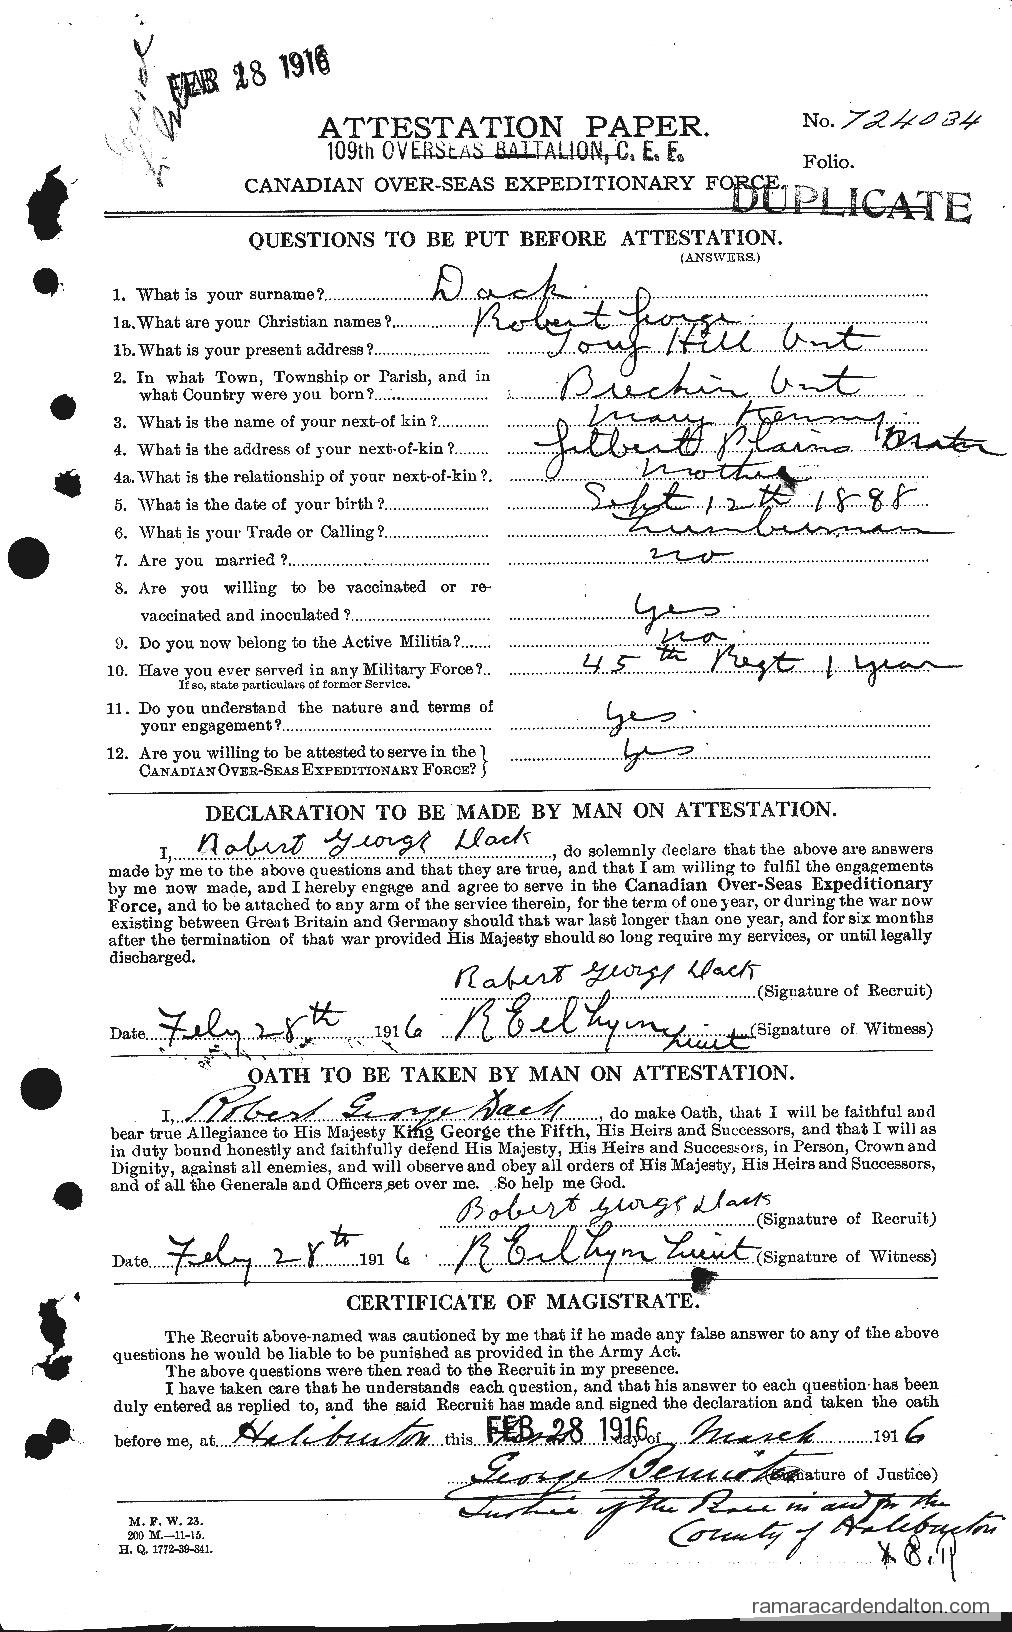 FEB 28 1916
ATTESTATION PAPER.
No. 724034
109th OVERSEAS BATTALION, C. E. F.
Folio.
CANADIAN OVER-SEAS EXPEDITIONARY FORCE.
DUPLICATE
QUESTIONS TO BE PUT BEFORE ATTESTATION.
(ANSWERS.)
1. What is your surname? Dack
1a. What are your Christian names? Robert George
1b. What is your present address? Tory Hill Ont
2. In what Town, Township or Parish, and in
what Country were you born? Brechin Ont
3. What is the name of your next-of kin? Mary
4. What is the address of your next-of-kin? Gilbert Plains
4a. What is the relationship of your next-of-kin? Mother
5. What is the date of your birth? Sept 12th 1888
6. What is your Trade or Calling? Lumberman
7. Are you married? no
8. Are you willing to be vaccinated or re-
vaccinated and inoculated? Yes
9. Do you now belong to the Active Militia? no
10. Have you ever served in any Military Force? 45th Regt 1 year
If so, state particulars of former Service.
11. Do you understand the nature and terms of
your engagement? Yes
12. Are you willing to be attested to serve in the
CANADIAN OVER-SEAS EXPEDITIONARY FORCE? Yes
DECLARATION TO BE MADE BY MAN ON ATTESTATION.
I, Robert George Dack, do solemnly declare that the above are answers
made by me to the above questions and that they are true, and that I am willing to fulfil the engagements
by me now made, and I hereby engage and agree to serve in the Canadian Over-Seas Expeditionary
Force, and to be attached to any arm of the service therein, for the term of one year, or during the war now
existing between Great Britain and Germany should that war last longer than one year, and for six months
after the termination of that war provided His Majesty should so long require my services, or until legally
discharged.
Robert George Dack (Signature of Recruit)
Date Feby 28th 1916 Lieut (Signature of Witness)
OATH TO BE TAKEN BY MAN ON ATTESTATION.
I, Robert George Dack, do make Oath, that I will be faithful and
bear true Allegiance to His Majesty King George the Fifth, His Heirs and Successors, and that I will as
in duty bound honestly and faithfully defend His Majesty, His Heirs and Successors, in Person, Crown and
Dignity, against all enemies, and will observe and obey all orders of His Majesty, His Heirs and Successors,
and of all the Generals and Officers set over me. So help me God.
Robert George Dack (Signature of Recruit)
Date Feby 28th 1916 Lieut (Signature of Witness)
CERTIFICATE OF MAGISTRATE.
The Recruit above-named was cautioned by me that if he made any false answer to any of the above
questions he would be liable to be punished as provided in the Army Act.
The above questions were then read to the Recruit in my presence.
I have taken care that he understands each question, and that his answer to each question has been
duly entered as replied to, and the said Recruit has made and signed the declaration and taken the oath
before me, at Haliburton this FEB 28 1916 day of March 1916
George (Signature of Justice)
Justice of the Peace in and for the
County of Haliburton
M. F. W. 23.
200 M.—11-15.
H. Q. 1772-39-841.
ramaracardendalton.com